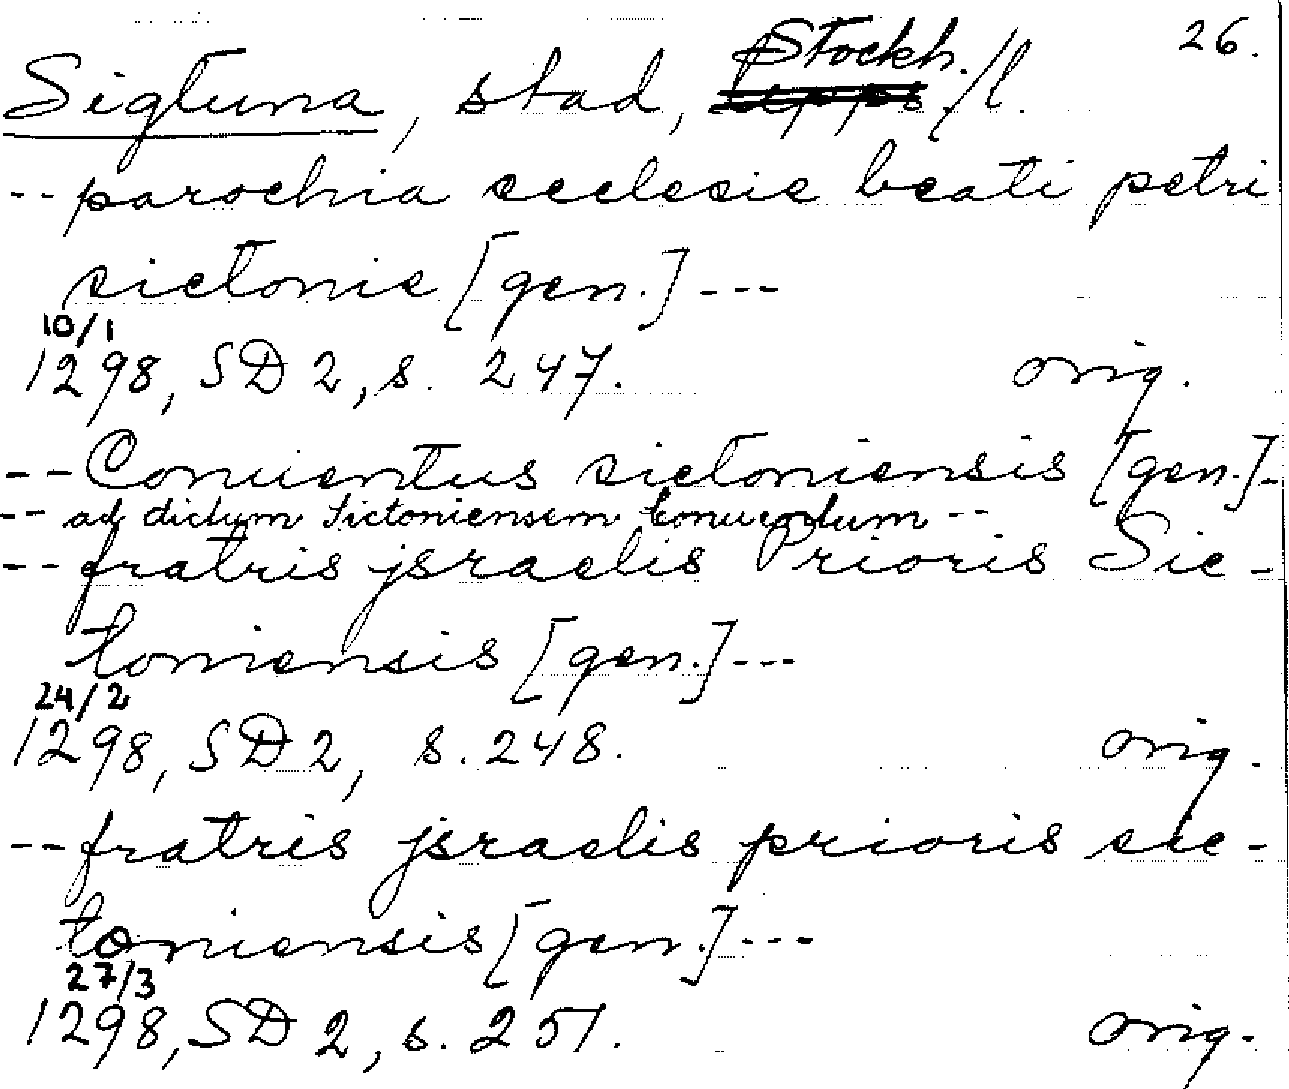 26.
Sigtuna, stad, Stockh./l.
-- parochia ecclesie beati petri
sictonie [gen.] ---
10/1
1298, SD 2, s. 247. orig.
-- Conuentus sictoniensis [gen.] -
-- ad dictum Sictoniensem Conuentum --
-- fratris jsraelis Prioris Sic-
toniensis [gen.] ---
24/2
1298, SD 2, s. 248. orig.
-- fratris jsraelis prioris sic-
toniensis [gen.] ---
27/3
1298, SD 2, s. 251. orig.